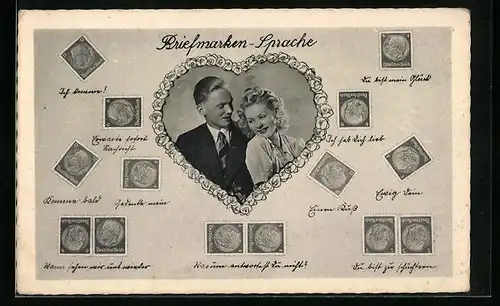 Briefmarken-Sprache
Ich komme!
Du bist mein Glück
Erwarte sofort
Nachricht
Ich hab Dich lieb
Komme bald
Gedenke mein
Einen Kuß
Ewig Dein
Wann sehen wir uns wieder
Warum antwortest Du nicht?
Du bist zu schüchtern
Deutsches Reich